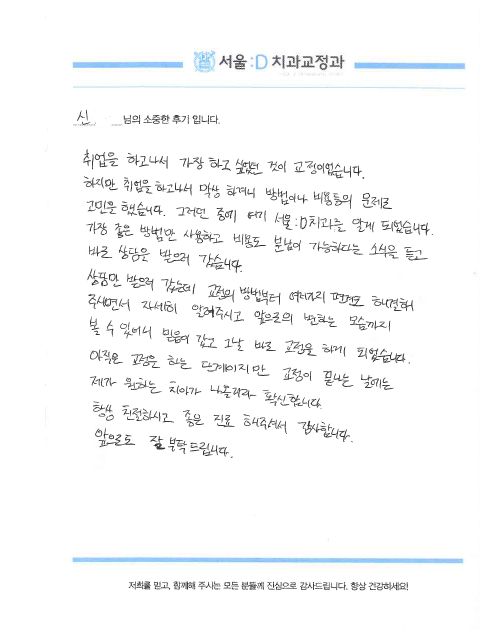 서울:D 치과교정과
신 님의 소중한 후기 입니다.
취업을 하고나서 가장 하고 싶었던 것이 교정이었습니다.
하지만 취업을 하고나서 막상 하려니 방법이나 비용등의 문제로
고민을 했습니다. 그러던 중에 여기 서울:D치과를 알게 되었습니다.
가장 좋은 방법만 사용하고 비용도 분납이 가능하다는 소식을 듣고
바로 상담을 받으러 갔습니다.
상담만 받으러 갔는데 교정의 방법부터 여러가지 편면도 해결해
주시면서 자세히 알려주시고 앞으로의 변하는 모습까지
볼 수 있어서 믿음이 갔고 그날 바로 교정을 하게 되었습니다.
아직은 교정을 하는 단계이지만 교정이 끝나는 날에는
제가 원하는 치아가 나올거라 확신합니다.
항상 친절하시고 좋은 진료 해주셔서 감사합니다.
앞으로도 잘 부탁드립니다.
저희를 믿고, 함께해 주시는 모든 분들께 진심으로 감사드립니다. 항상 건강하세요!